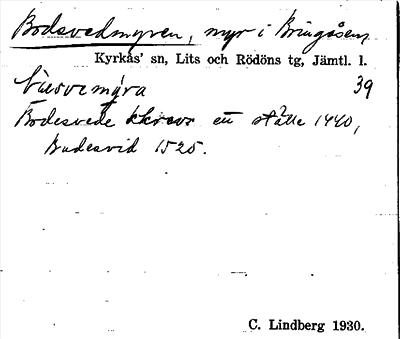 Bodsvedmyren, myr i Bringåsen
Kyrkås' sn, Lits och Rödöns tg, Jämtl. l.
39
Bodesvede skrevs ett ställe 1440,
Budesvid 1525.
C. Lindberg 1930.